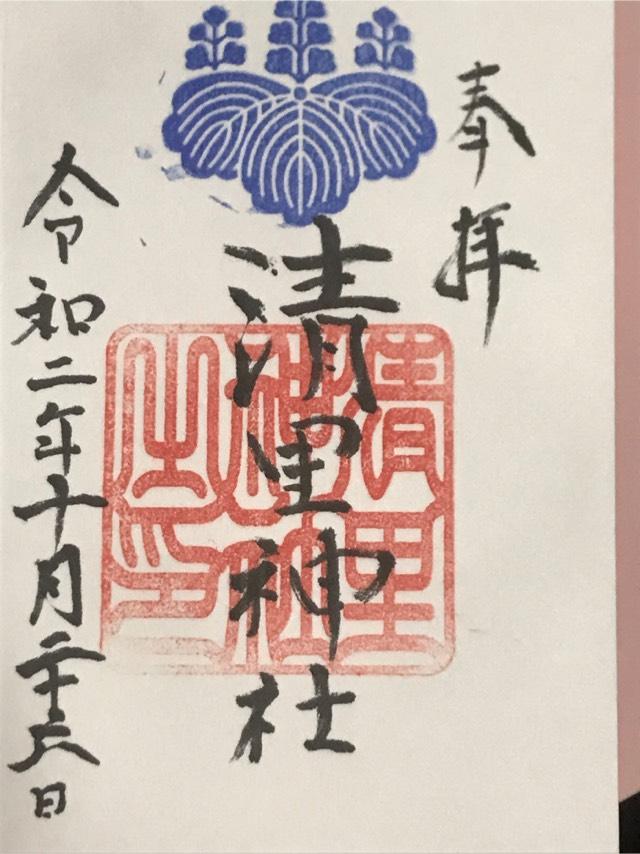 奉拝
清里神社
清里神社之印
令和二年十月二十六日